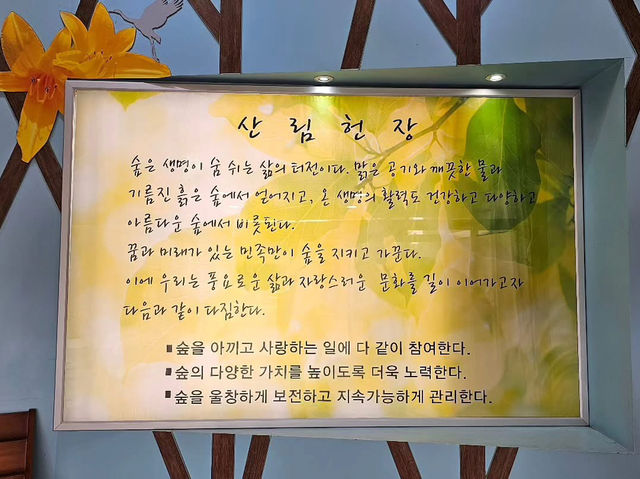 산 림 헌 장
숲은 생명이 숨 쉬는 삶의 터전이다. 맑은 공기와 깨끗한 물과
기름진 흙은 숲에서 얻어지고, 온 생명의 활력도 건강하고 다양하고
아름다운 숲에서 비롯된다.
꿈과 미래가 있는 민족만이 숲을 지키고 가꾼다.
이에 우리는 풍요로운 삶과 자랑스러운 문화를 길이 이어가고자
다음과 같이 다짐한다.
■숲을 아끼고 사랑하는 일에 다 같이 참여한다.
■숲의 다양한 가치를 높이도록 더욱 노력한다.
■숲을 울창하게 보전하고 지속가능하게 관리한다.